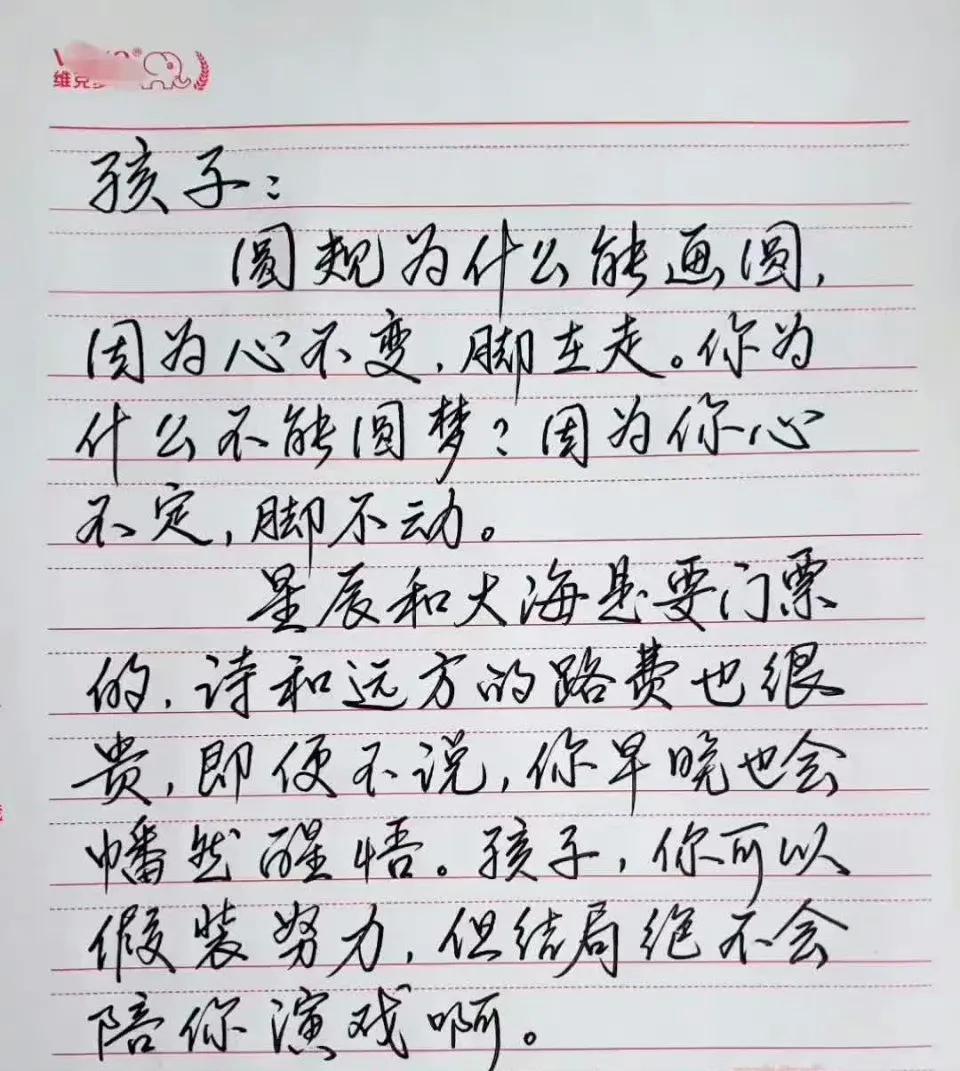 维克
孩子：
圆规为什么能画圆，
因为心不变，脚在走。你为
什么不能圆梦？因为你心
不定，脚不动。
星辰和大海是要门票
的，诗和远方的路费也很
贵，即便不说，你早晚也会
幡然醒悟。孩子，你可以
假装努力，但结局绝不会
陪你演戏啊。